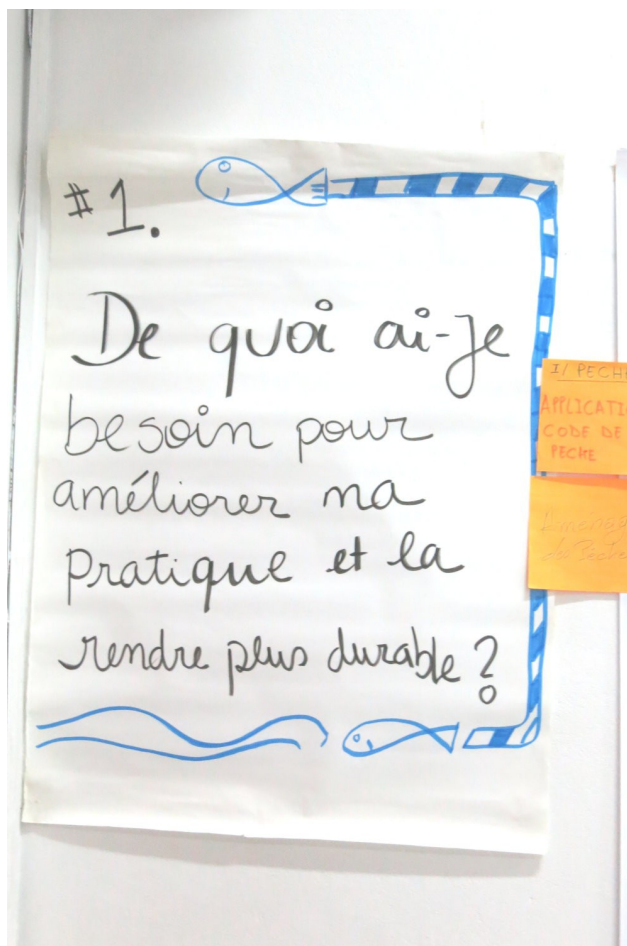 #1.
De quoi ai-je
besoin pour
améliorer ma
pratique et la
rendre plus durable ?
I/ PECH
APPLICATI
CODE DE
PECHE